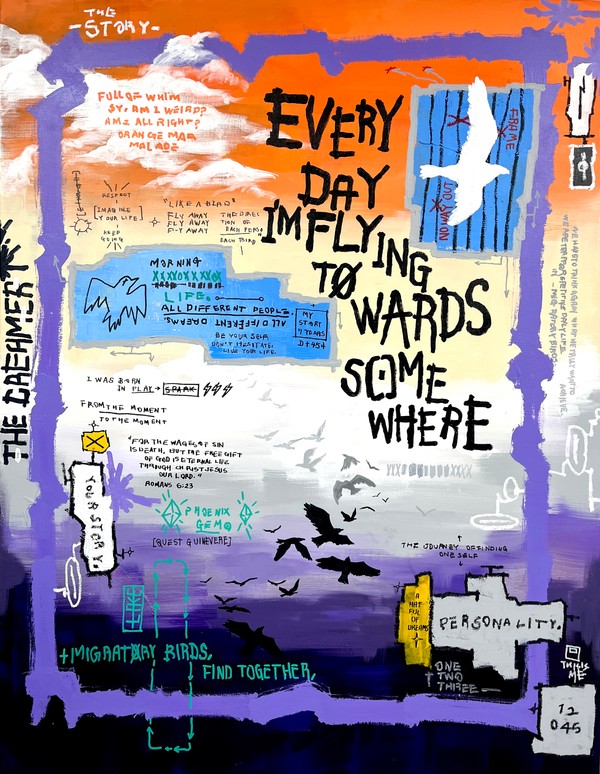 THE
-STORY-
FULL OF WHIM
SY, AM I WEIRD?
AM I ALL RIGHT?
ORANGE MAR
MALADE
EVERY
DAY
I'M FLYING
TØWARDS
SOME
WHERE
FRAME
RESPECT
[IMAGINE
YOUR LIFE]
KEEP
GOING
"LIKE A BIRD"
FLY AWAY
FLY AWAY
F-Y AWAY
THE DIREC
TION OF
EACH PERS
EACH THIRD
THE DREAMER
MORNING
LIFE.
ALL DIFFERENT PEOPLE.
ALL DIFFERENT DREAMS.
BE YOUR SELF
DON'T HESITATE.
LIVE YOUR LIFE.
MY
STORY
7 YEARS
I WAS BORN
IN PLAY → SPARK
FROM THE MOMENT
TO THE MOMENT
"FOR THE WAGES OF SIN
IS DEATH, BUT THE FREE GIFT
OF GOD IS ETERNAL LIFE
THROUGH CHRIST JESUS
OUR LORD."
ROMANS 6:23
YOUR STORY.
PHOENIX
GEM
[QUEST GUINEVERE]
THE JOURNEY OF FINDING
ONE SELF
A
ART
FUL
OF
DREAMS
PERSONALITY.
+MIGRATØRY BIRDS,
FIND TOGETHER,
ONE
TWO
THREE
THIS IS
ME
12
045